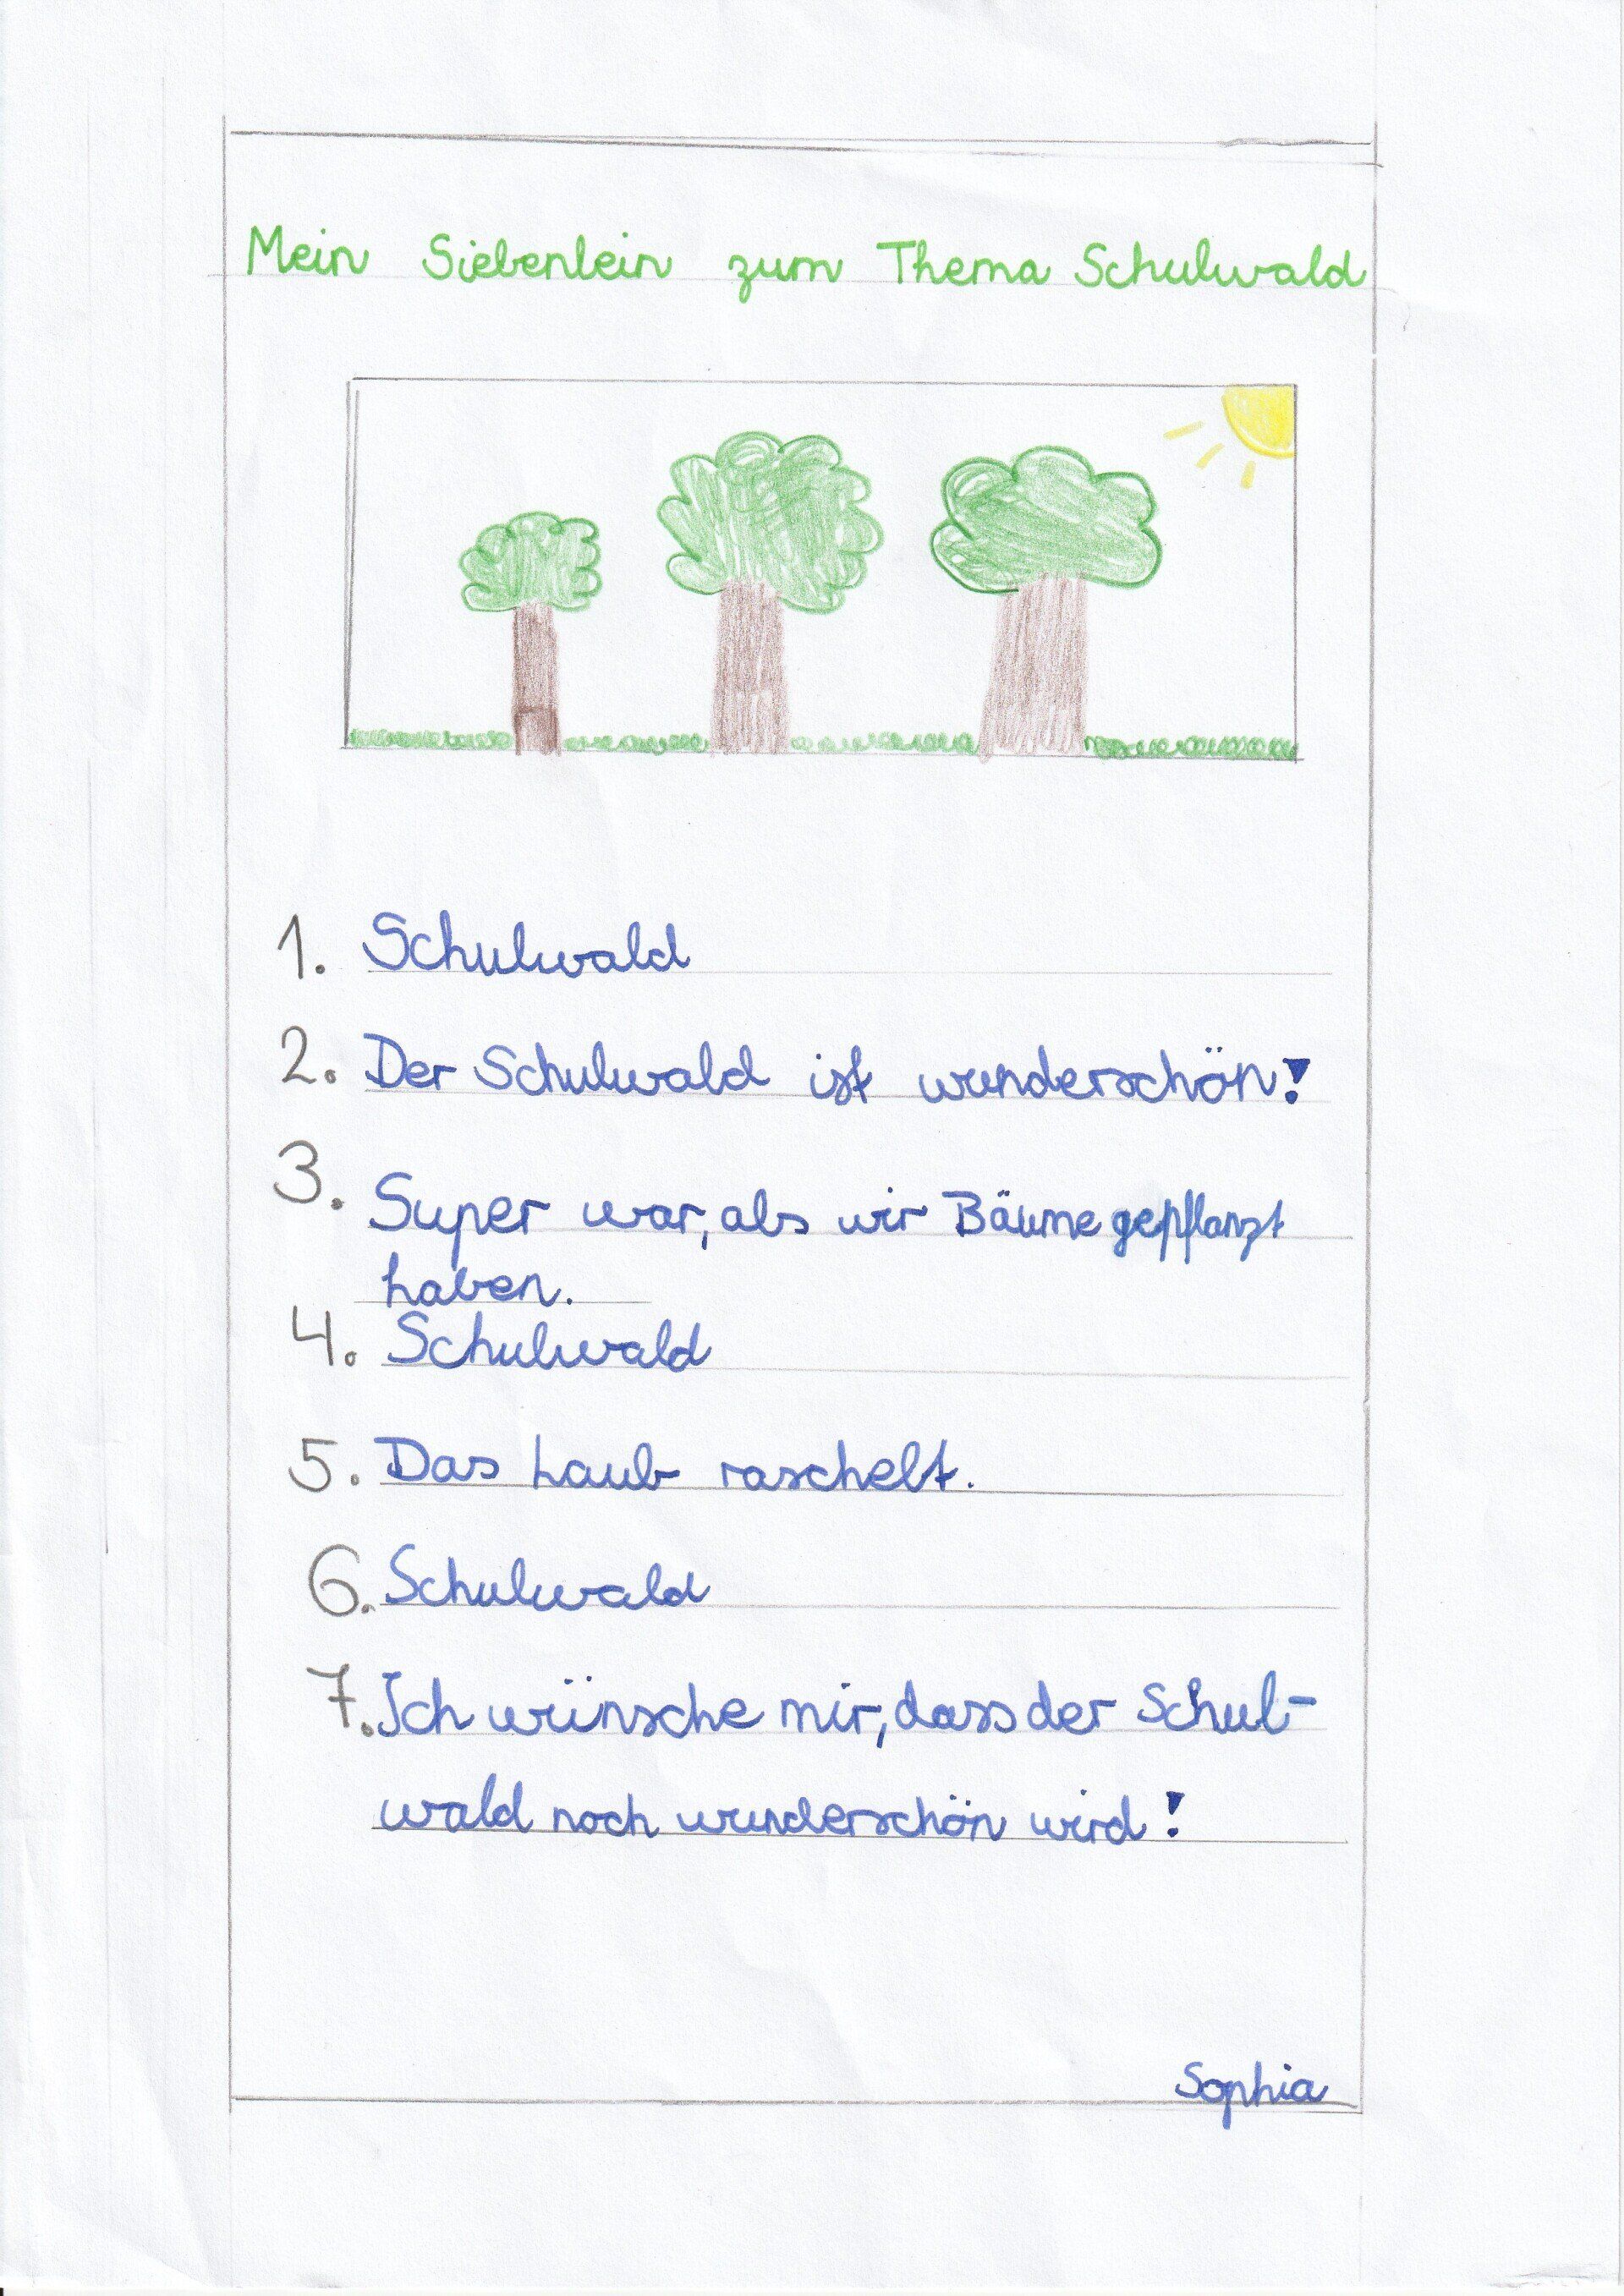 Mein Siebenlein zum Thema Schulwald
1. Schulwald
2. Der Schulwald ist wunderschön!
3. Super war, als wir Bäume gepflanzt
haben.
4. Schulwald
5. Das Laub raschelt.
6. Schulwald
7. Ich wünsche mir, dass der Schul-
wald noch wunderschön wird!
Sophia